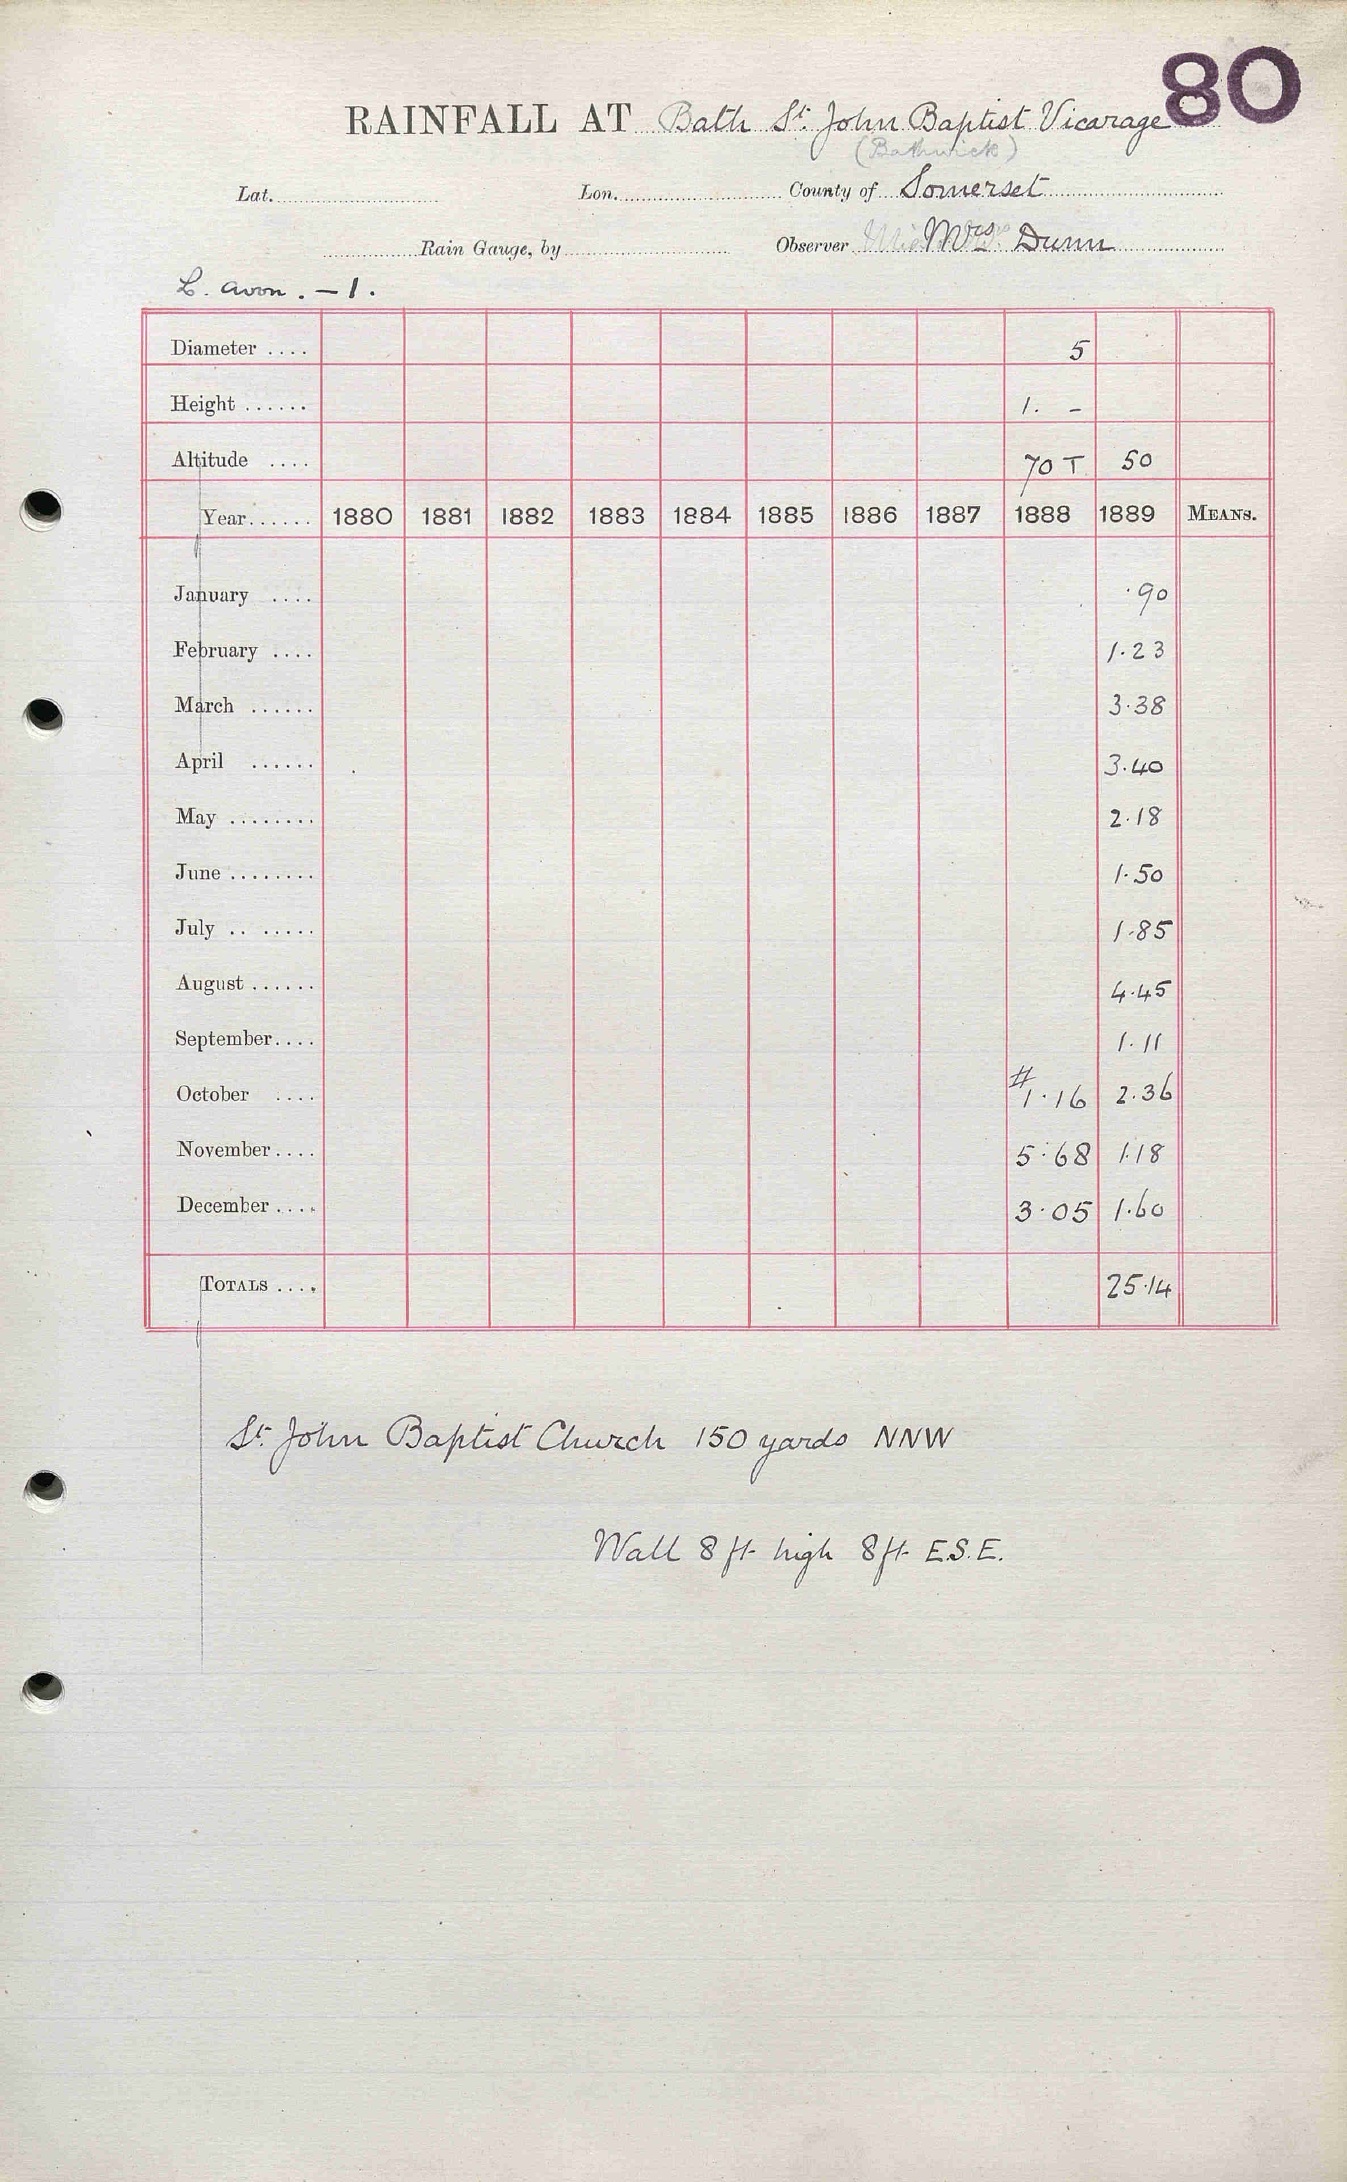 80
RAINFALL AT Bath St. John Baptist Vicarage
(Bathwick)
Lat. Lon. County of Somerset
Rain Gauge, by Observer Mrs Dunn
L. Avon. – 1.
Diameter .... 5
Height ...... 1. –
Altitude .... 70 T 50
Year...... 1880 1881 1882 1883 1884 1885 1886 1887 1888 1889 MEANS.
January .... .90
February .... 1.23
March ...... 3.38
April ...... 3.40
May ........ 2.18
June ........ 1.50
July .. ..... 1.85
August ...... 4.45
September.... 1.11
October .... # 1.16 2.36
November.... 5.68 1.18
December .... 3.05 1.60
TOTALS .... 25.14
St. John Baptist Church 150 yards NNW
Wall 8 ft high 8 ft E.S.E.